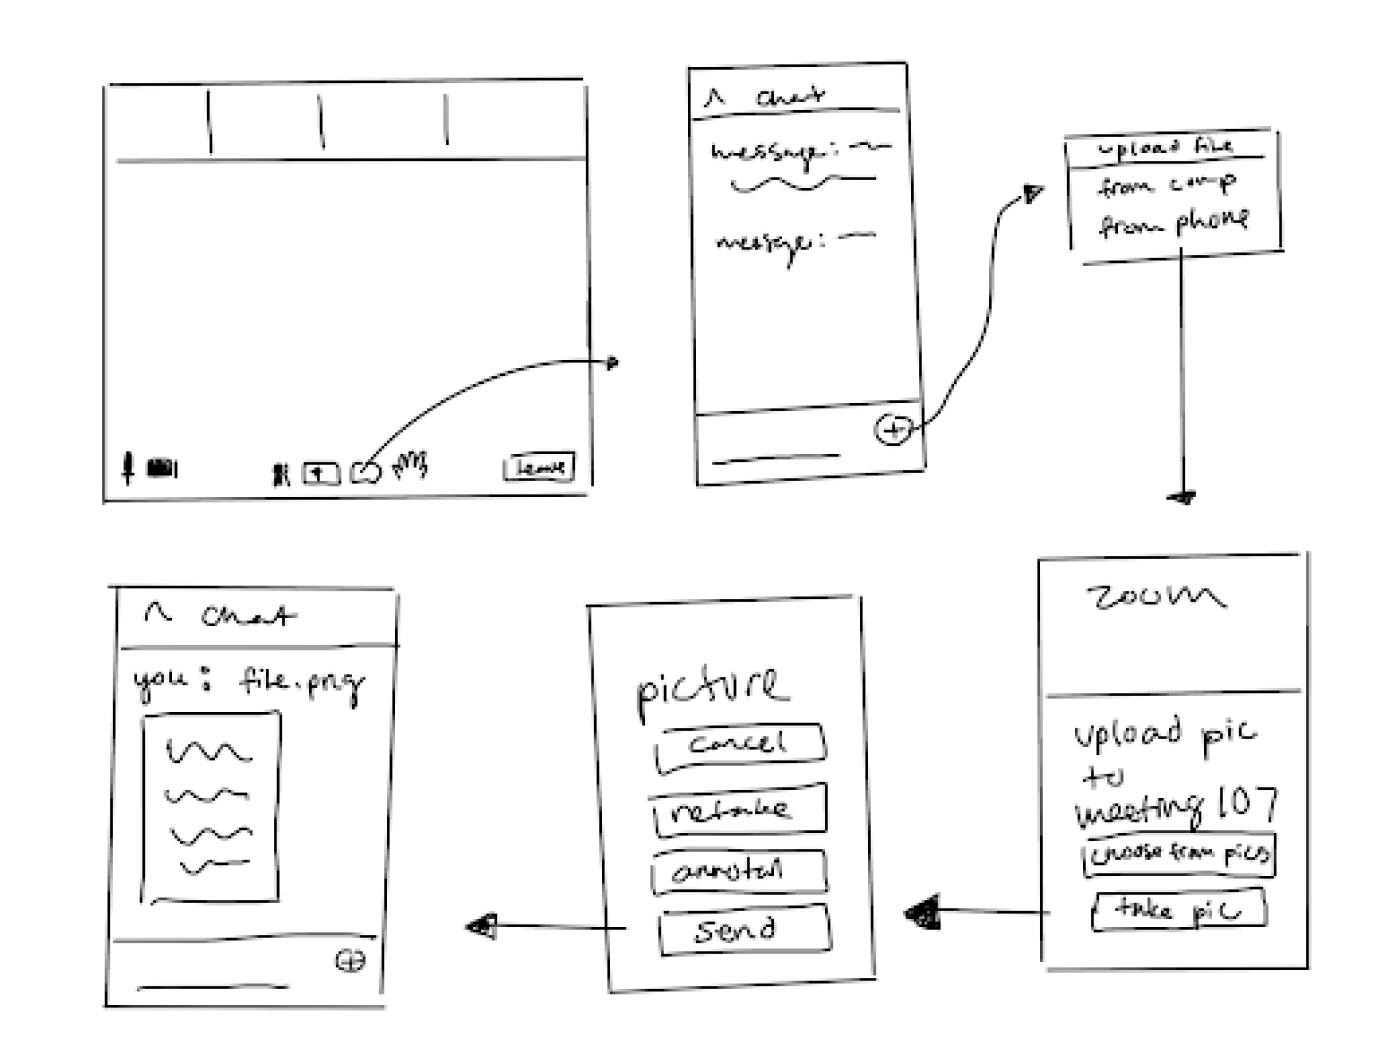 Leave
^ Chat
message:
message:
upload file
from comp
from phone
zoom
upload pic
to
meeting 107
choose from pics
take pic
picture
cancel
retake
annotat
Send
^ Chat
you: file.png